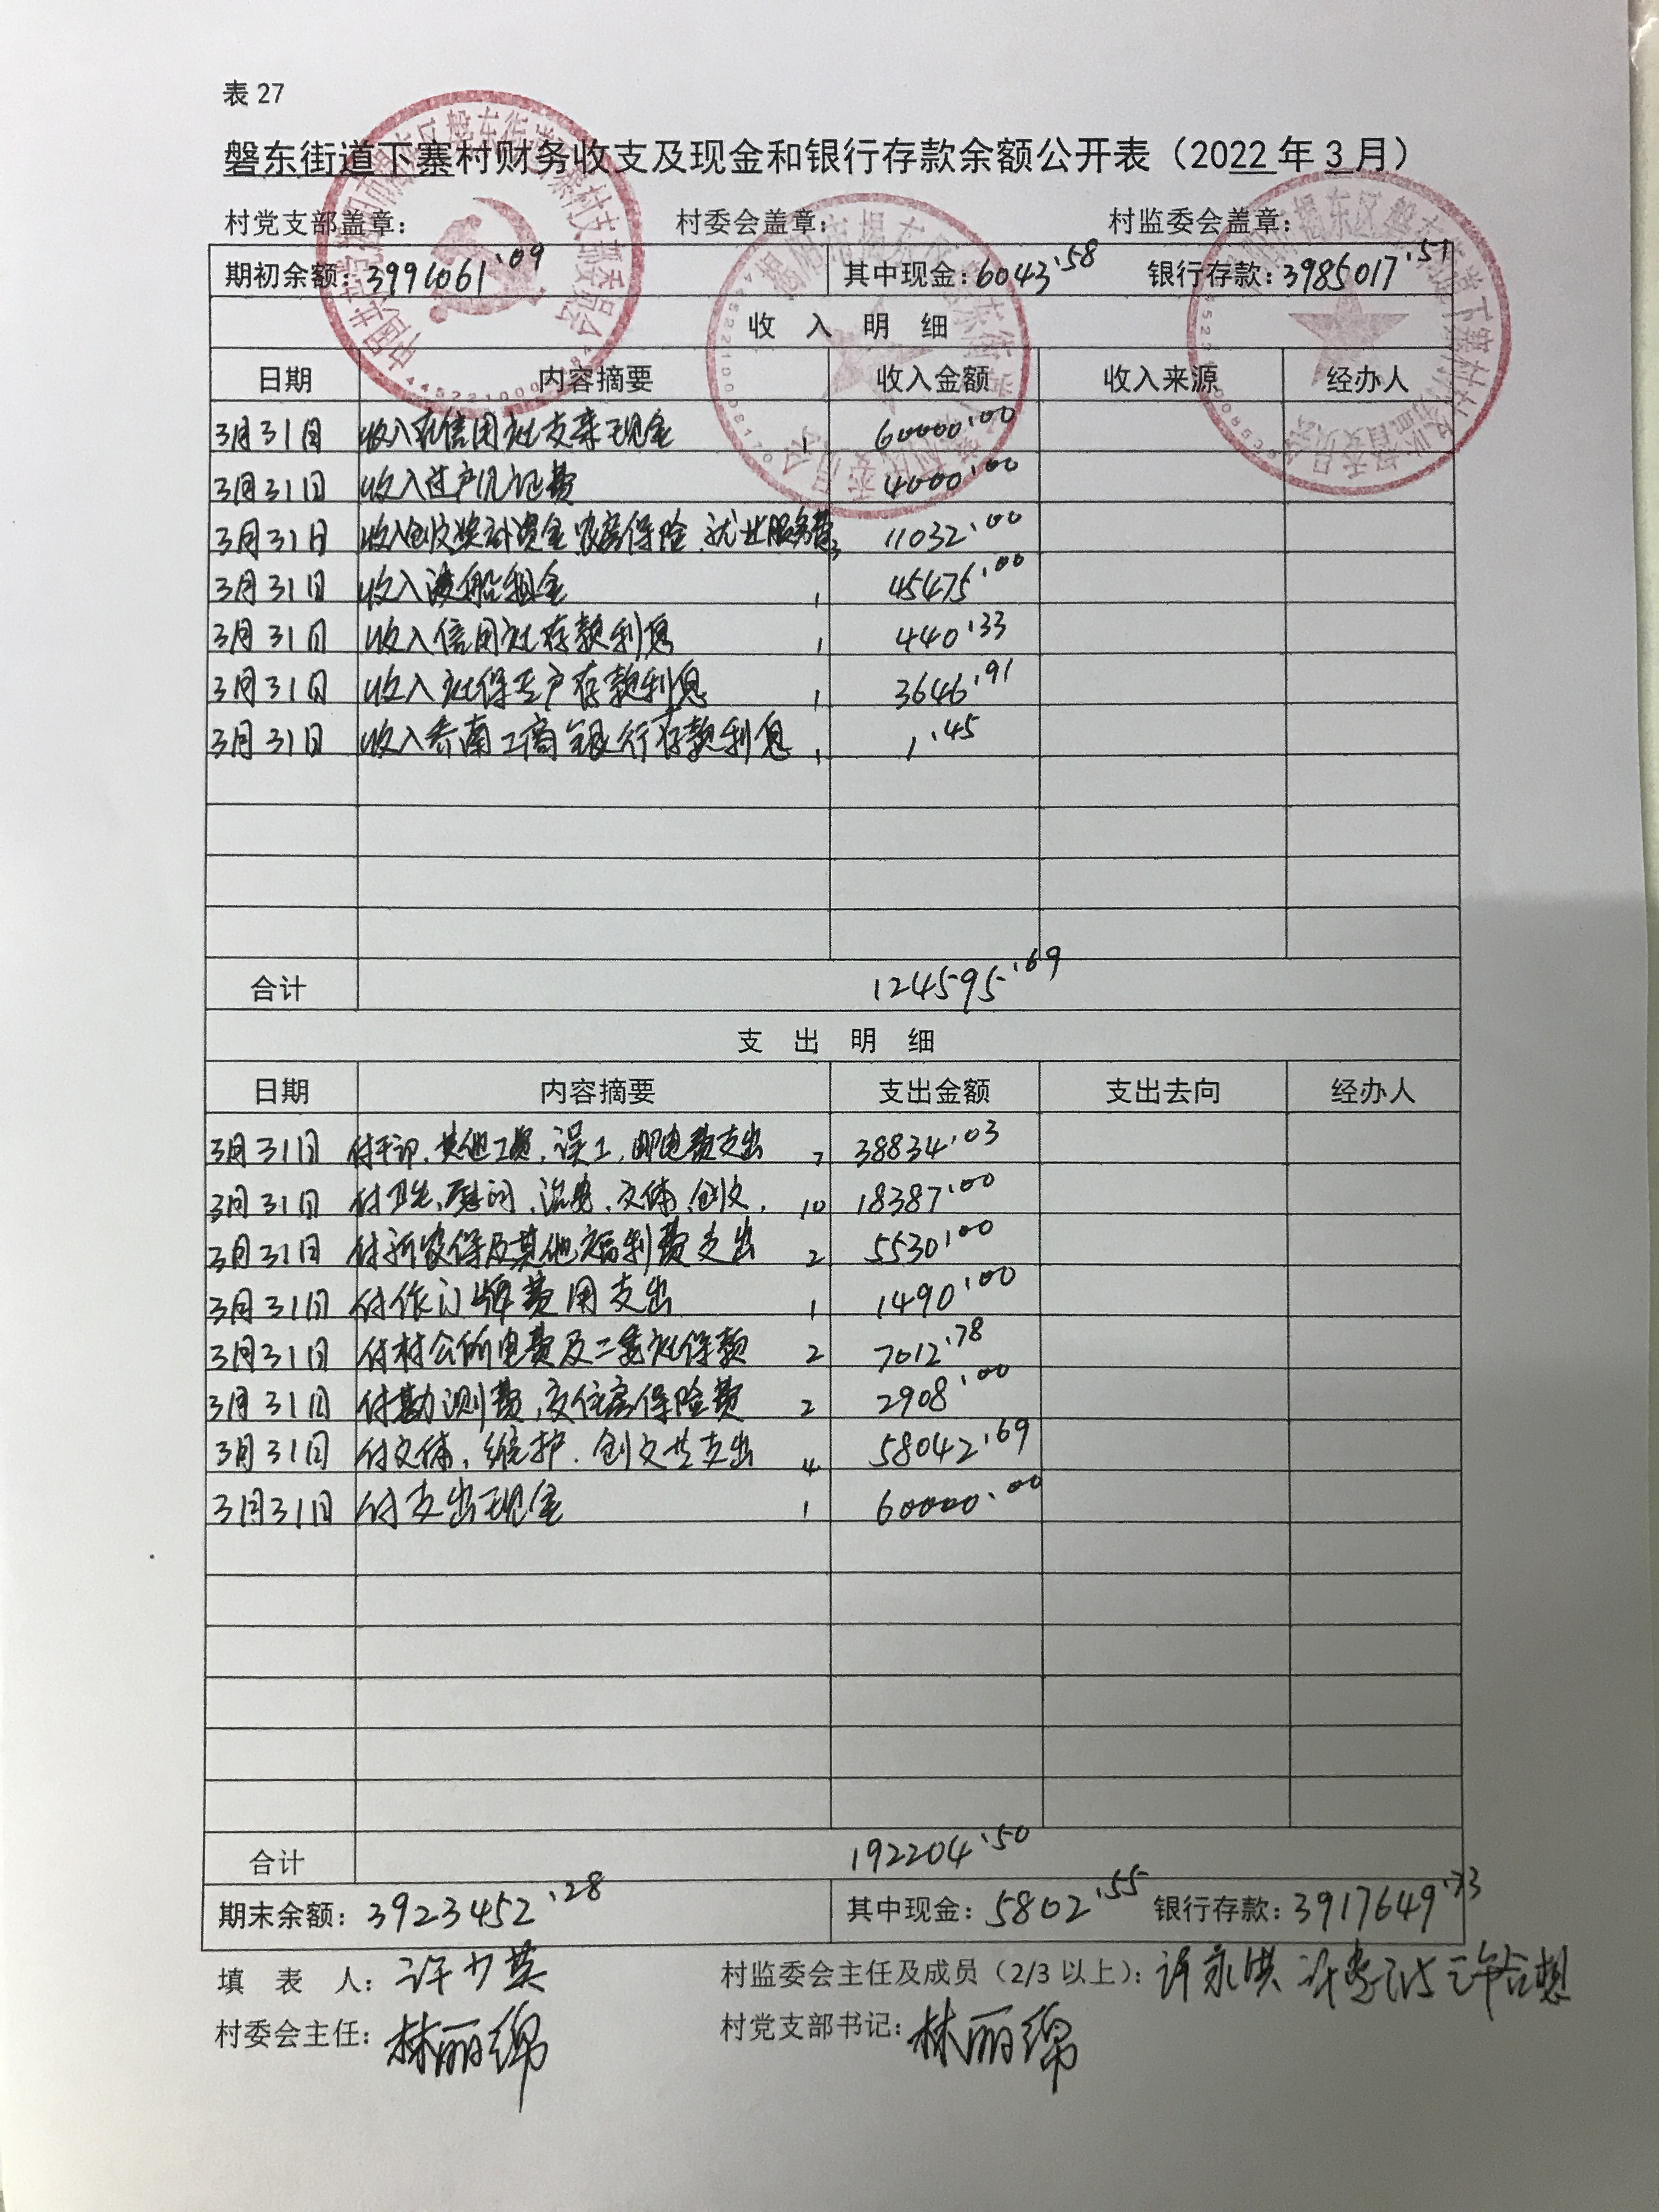 表 27
磐东街道下寨村财务收支及现金和银行存款余额公开表（2022 年 3 月）
村党支部盖章： 村委会盖章： 村监委会盖章：
期初余额：3991061.09 其中现金：6043.58 银行存款：3985017.51
收 入 明 细
日期 内容摘要 收入金额 收入来源 经办人
3月31日 收入在信用社支来现金 1 60000.00
3月31日 收入过户 证费 4000.00
3月31日 收入创文奖补资金.农房保险.就业服务费 3 11032.00
3月31日 收入渡船租金 1 45475.00
3月31日 收入信用社存款利息 1 440.33
3月31日 收入社保专户存款利息 1 3646.91
3月31日 收入乔南工商银行存款利息 1 1.45
合计 124595.69
支 出 明 细
日期 内容摘要 支出金额 支出去向 经办人
3月31日 付干部.其他工资.误工.邮电费支出 7 38834.03
3月31日 付卫生.慰问.治安.文体.创文. 10 18387.00
3月31日 付新农保及其他福利费支出 2 5530.00
3月31日 付作门牌费用支出 1 1490.00
3月31日 付村公所电费及二委社保款 2 7012.78
3月31日 付勘测费.交住房保险费 2 2908.00
3月31日 付文体.维护.创文共支出 4 58042.69
3月31日 付支出现金 1 60000.00
合计 192204.50
期末余额：3923452.28 其中现金：5802.55 银行存款：3917649.73
填 表 人：许少英 村监委会主任及成员（2/3 以上）：许永洪
村委会主任：林丽绵 村党支部书记：林丽绵